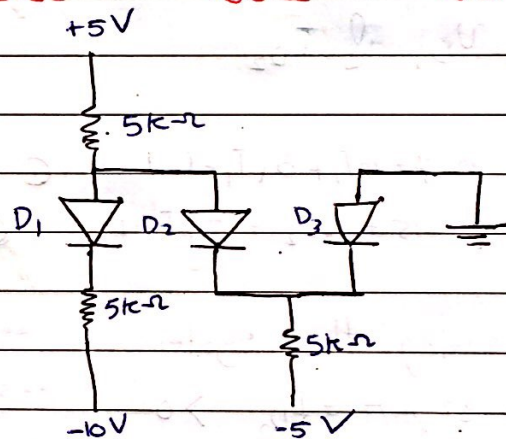 +5V
5kΩ
D1 D2 D3
5kΩ
5kΩ
-10V -5V